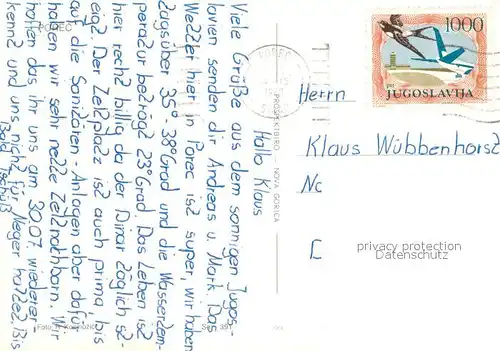 Hallo Klaus
Viele Grüße aus dem sonnigen Jugos-
lavien senden dir Andreas u. Mark. Das
Wetter hier in Porec ist super, wir haben
Tagsüber 35°-38°Grad und die Wassertem-
peratur beträgt 23°Grad. Das Leben ist
hier recht billig da der Dinar täglich st-
eigt. Der Zeltplatz ist auch prima, bis
auf die Sanitären-Anlagen aber dafür
haben wir sehr nette Zeltnachbarn. Wir
hoffen das ihr uns am 30.07 wiederer-
kennt und uns nicht für Neger haltet. Bis
Bald
Tschüß
POREČ
PROSJEKTBIRO - NOVA GORICA
1000
JUGOSLAVIJA
Herrn
Klaus Wübbenhorst
privacy protection
Datenschutz